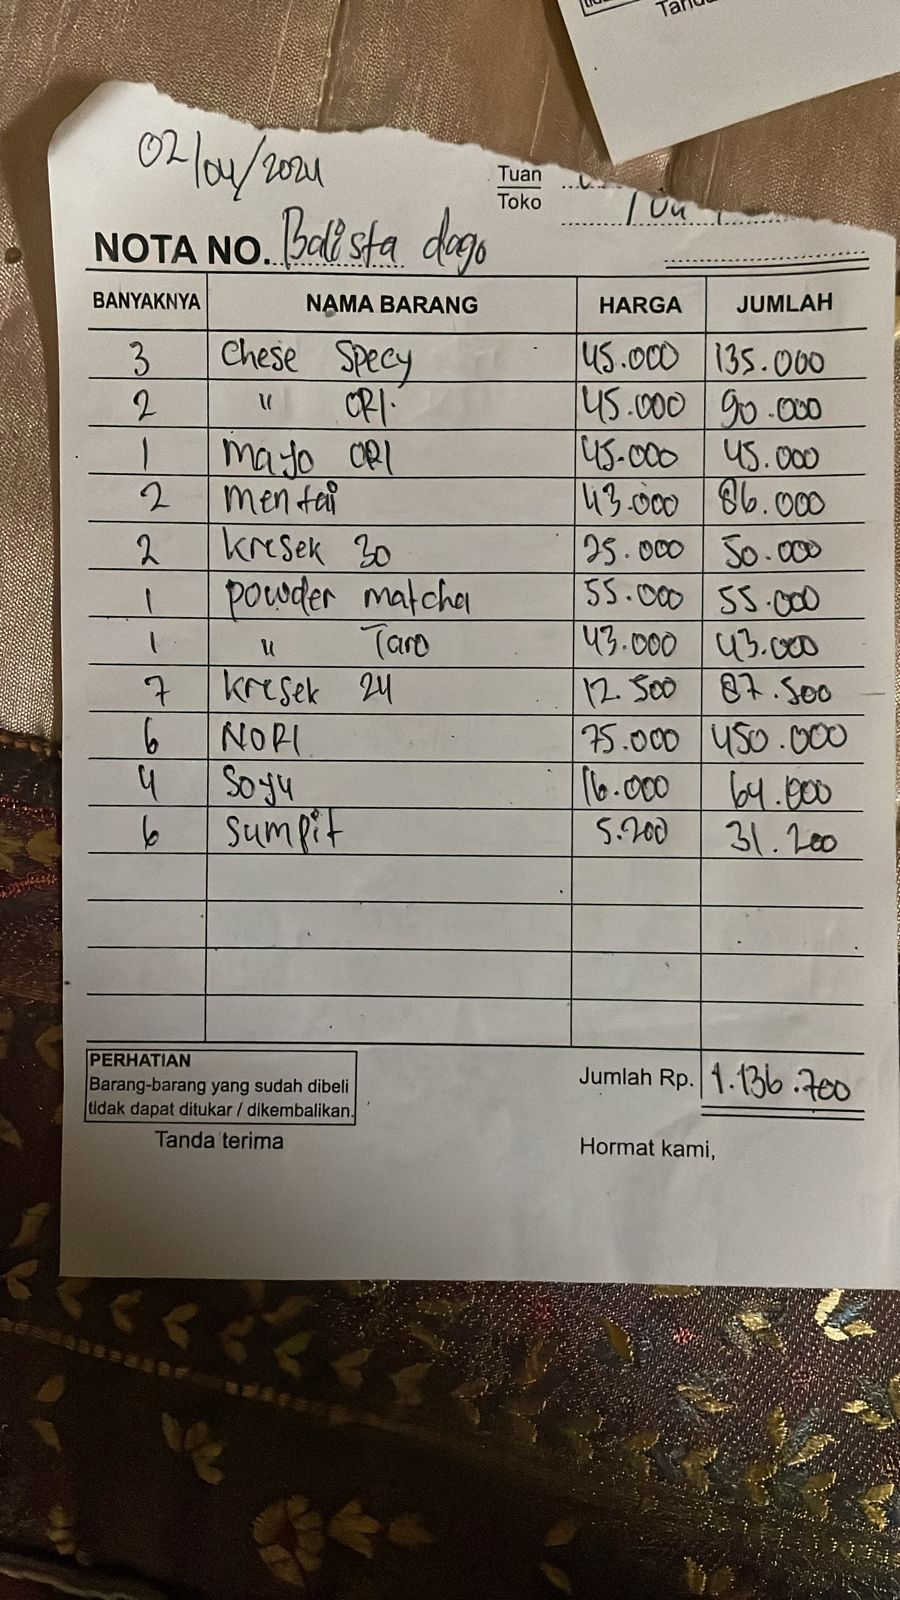 Tanda
02/04/2024
Tuan
Toko
NOTA NO. Balista dago
BANYAKNYA NAMA BARANG HARGA JUMLAH
3 Chese Specy 45.000 135.000
2 " ORI. 45.000 90.000
1 Mayo ORI 45.000 45.000
2 Mentai 43.000 86.000
2 Kresek 30 25.000 50.000
1 powder matcha 55.000 55.000
1 " Taro 43.000 43.000
7 Kresek 24 12.500 87.500
6 NORI 75.000 450.000
4 Soyu 16.000 64.000
6 Sumpit 5.200 31.200
PERHATIAN
Barang-barang yang sudah dibeli
tidak dapat ditukar / dikembalikan.
Jumlah Rp. 1.136.700
Tanda terima
Hormat kami,